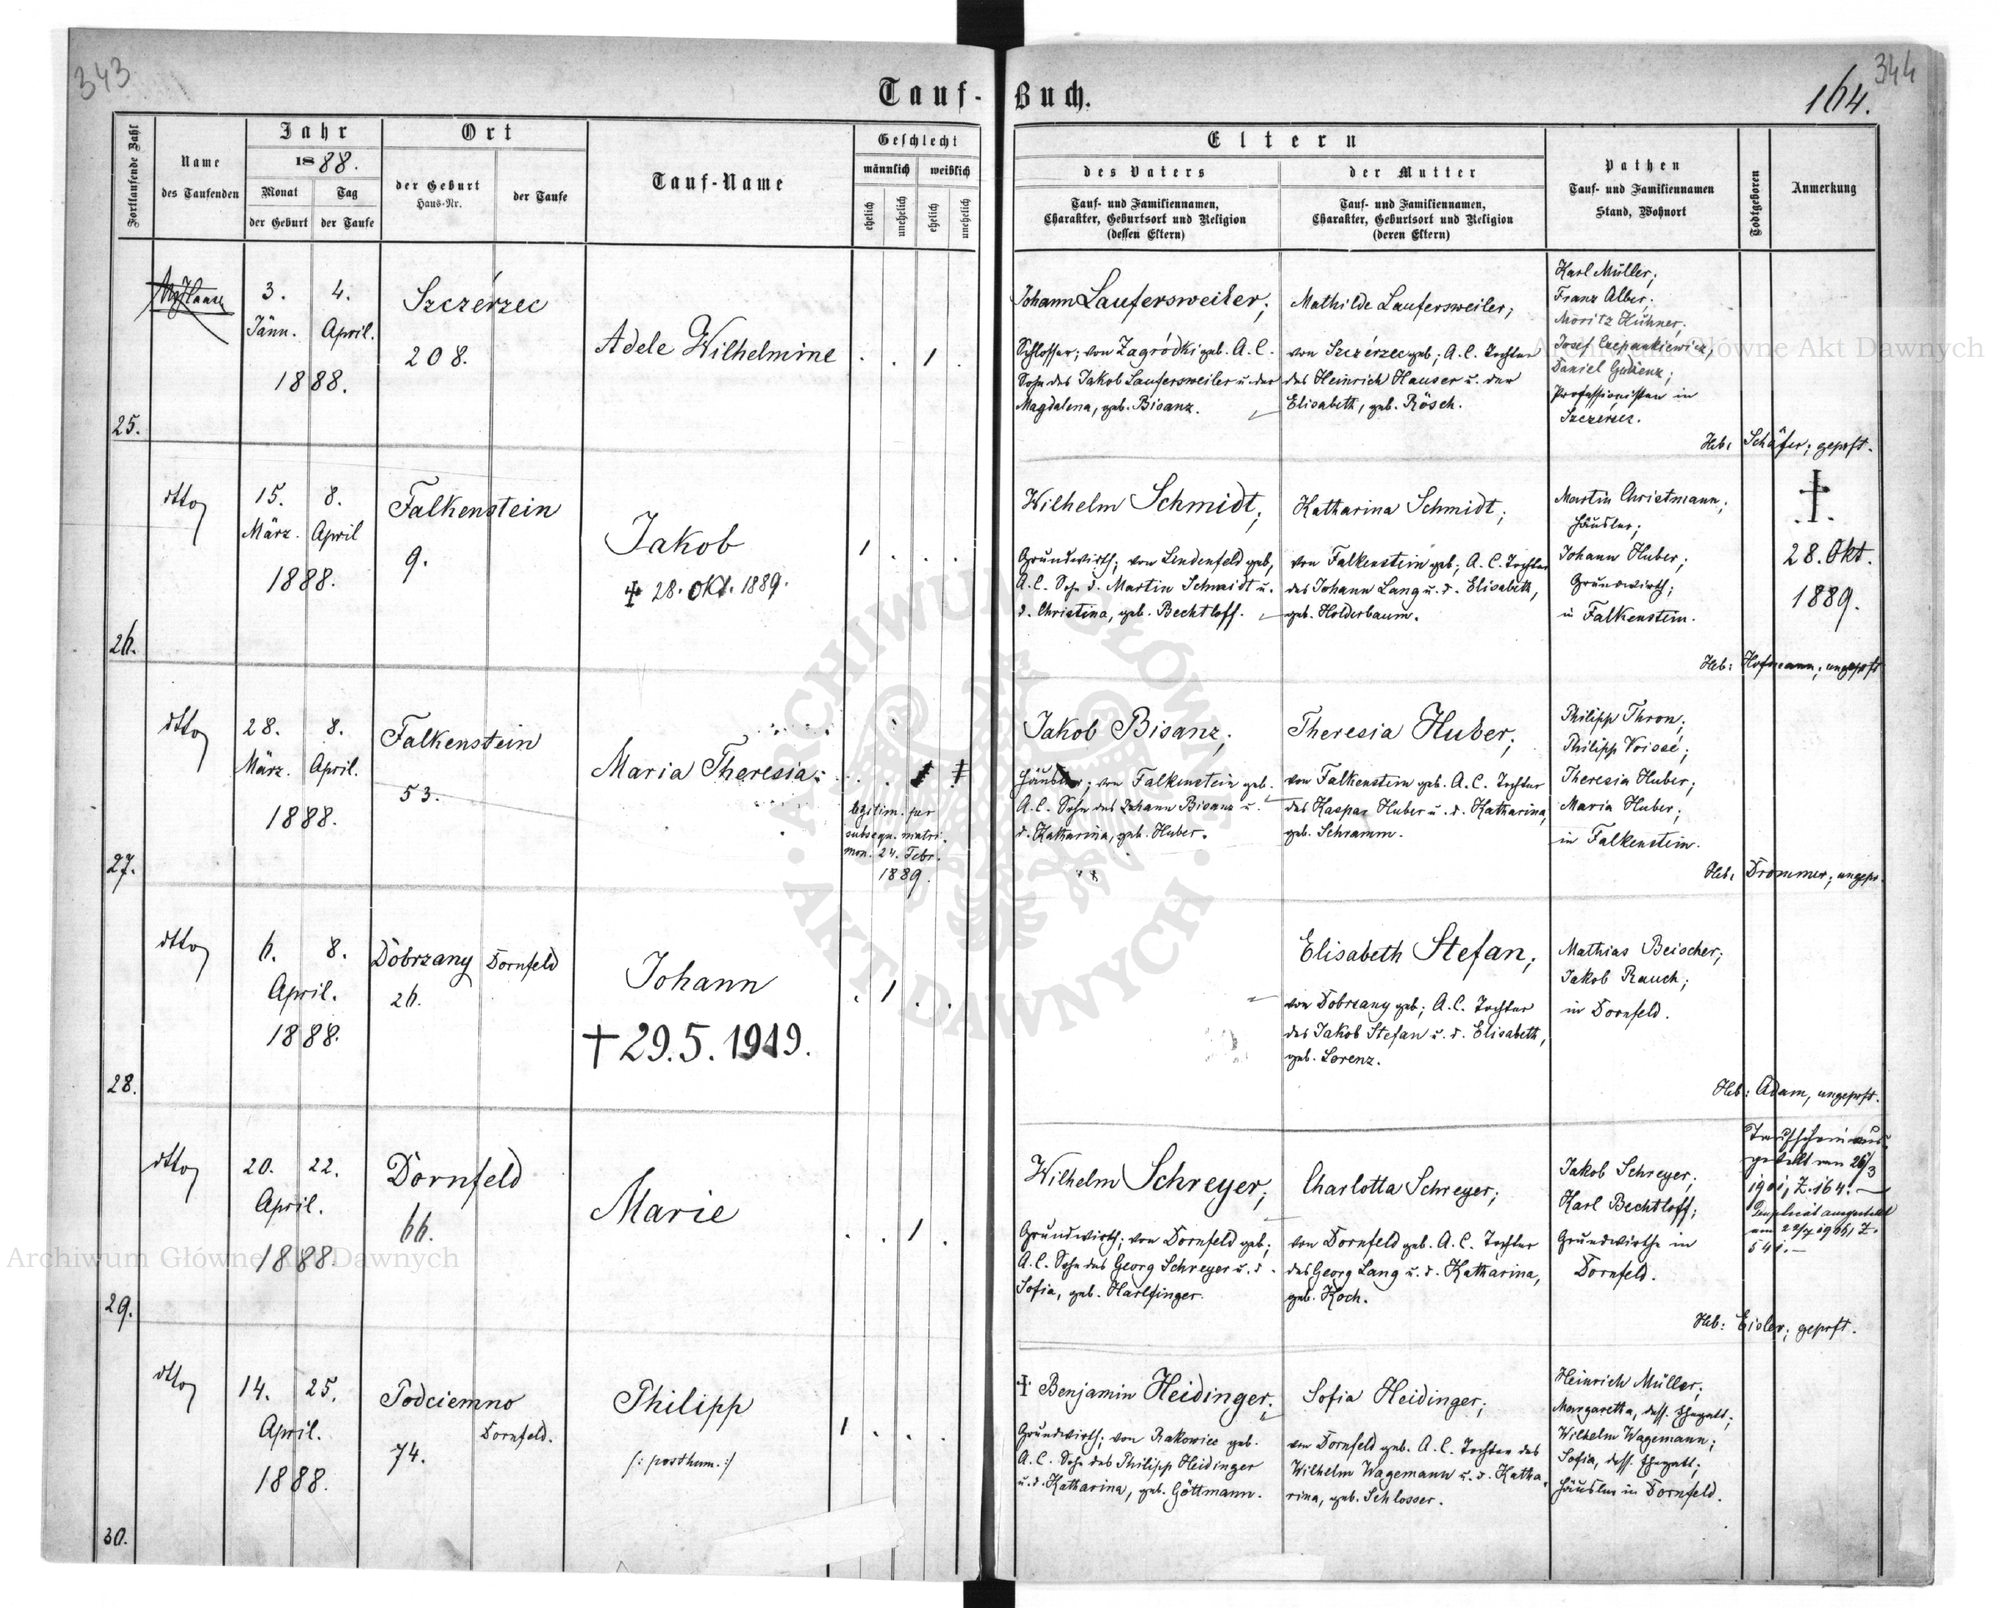 343
344
164.
Tauf-Buch.
Fortlaufende Zahl
Name
des Taufenden
Jahr
1888.
Monat
der Geburt
Tag
der Taufe
Ort
der Geburt
Haus-Nr.
der Taufe
Tauf-Name
Geschlecht
männlich
weiblich
ehelich
unehelich
ehelich
unehelich
Eltern
des Vaters
Tauf- und Familiennamen,
Charakter, Geburtsort und Religion
(dessen Eltern)
der Mutter
Tauf- und Familiennamen,
Charakter, Geburtsort und Religion
(deren Eltern)
Pathen
Tauf- und Familiennamen
Stand, Wohnort
Todtgeboren
Anmerkung
25.
3. 4.
Jänn. April.
1888.
Szczérzec
208.
Adele Wilhelmine
. . 1 .
Johann Laufersweiler;
Schlosser; von Zagródki geb. A.C.
Sohn des Jakob Laufersweiler u. der
Magdalena, geb. Bisanz.
Mathilde Laufersweiler;
von Szczérzec geb; A.C. Tochter
des Heinrich Hauser u. der
Elisabeth, geb. Rösch.
Karl Müller;
Franz Alber;
Moritz Hühner;
Daniel
Professionisten in
Szczérzec.
Heb: Schäfer; geprft.
26.
dtto
15. 8.
März. April
1888.
Falkenstein
9.
Jakob
‡ 28. Okt. 1889.
1 . . .
Wilhelm Schmidt;
Grundwirth; von Lindenfeld geb,
A.C. Sohn d. Martin Schmidt u.
d. Christina, geb. Bechtloff.
Katharina Schmidt;
von Falkenstein geb; A.C. Tochter
des Johann Lang u. d. Elisabeth,
geb. Holderbaum.
Martin Christmann;
Häusler;
Johann Huber;
Grundwirth;
in Falkenstein.
28. Okt.
1889.
Heb: Hofmann; ungeprft
27.
dtto
28. 8.
März. April.
1888.
Falkenstein
53.
Maria Theresia
legitim. per
subsequ. matri-
mon. 24. Febr.
1889.
Jakob Bisanz;
Häusler; von Falkenstein geb.
A.C. Sohn des Johann Bisanz u.
d. Katharina, geb. Huber.
Theresia Huber;
von Falkenstein geb. A.C. Tochter
des Kaspar Huber u. d. Katharina,
geb. Schramm.
Philipp Thron;
Philipp Voisé;
Theresia Huber;
Maria Huber;
in Falkenstein.
Heb: Drommer; ungepr.
28.
dtto
6. 8.
April.
1888.
Dobrzany
26.
Dornfeld
Johann
† 29.5.1919.
. 1 . .
Elisabeth Stefan;
von Dobrzany geb; A.C. Tochter
des Jakob Stefan u. d. Elisabeth,
geb. Lorenz.
Mathias Beischer;
Jakob Rauch;
in Dornfeld.
Heb: Adam, ungeprft.
29.
dtto
20. 22.
April.
1888.
Dornfeld
66.
Marie
. . 1 .
Wilhelm Schreyer;
Grundwirth; von Dornfeld geb;
A.C. Sohn des Georg Schreyer u. d.
Sofia, geb. Harlfinger.
Charlotta Schreyer;
von Dornfeld geb. A.C. Tochter
des Georg Lang u. d. Katharina,
geb. Koch.
Jakob Schreyer;
Karl Bechtloff;
Grundwirthe in
Dornfeld.
Taufschein aus-
gestellt am 26/3
1901, Z. 164.
Duplicat ausgestellt
Heb: Eisler; geprft.
30.
dtto
14. 25.
April.
1888.
Podciemno
74.
Dornfeld.
Philipp
(: posthum. :)
1 . . .
‡ Benjamin Heidinger;
Grundwirth; von Rakowiec geb.
A.C. Sohn des Philipp Heidinger
u. d. Katharina, geb. Göttmann.
Sofia Heidinger;
von Dornfeld geb. A.C. Tochter des
Wilhelm Wagemann u. d. Katha-
rina, geb. Schlosser.
Heinrich Müller;
Margaretta, dess. Ehegatt;
Wilhelm Wagemann;
Sofia, dess. Ehegatt;
Häusler in Dornfeld.
Archiwum Główne Akt Dawnych
Archiwum Główne Akt Dawnych
ARCHIWUM GŁÓWNE · AKT DAWNYCH ·